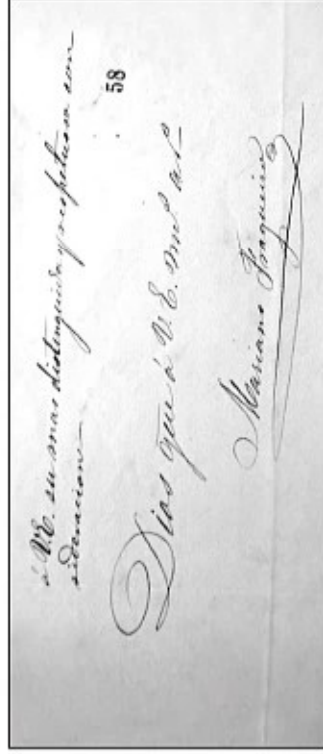 á V.E. su mas distinguida y respetuosa con
sideracion
58
Dios gue á V.E. ms as
Mariano Fragueiro